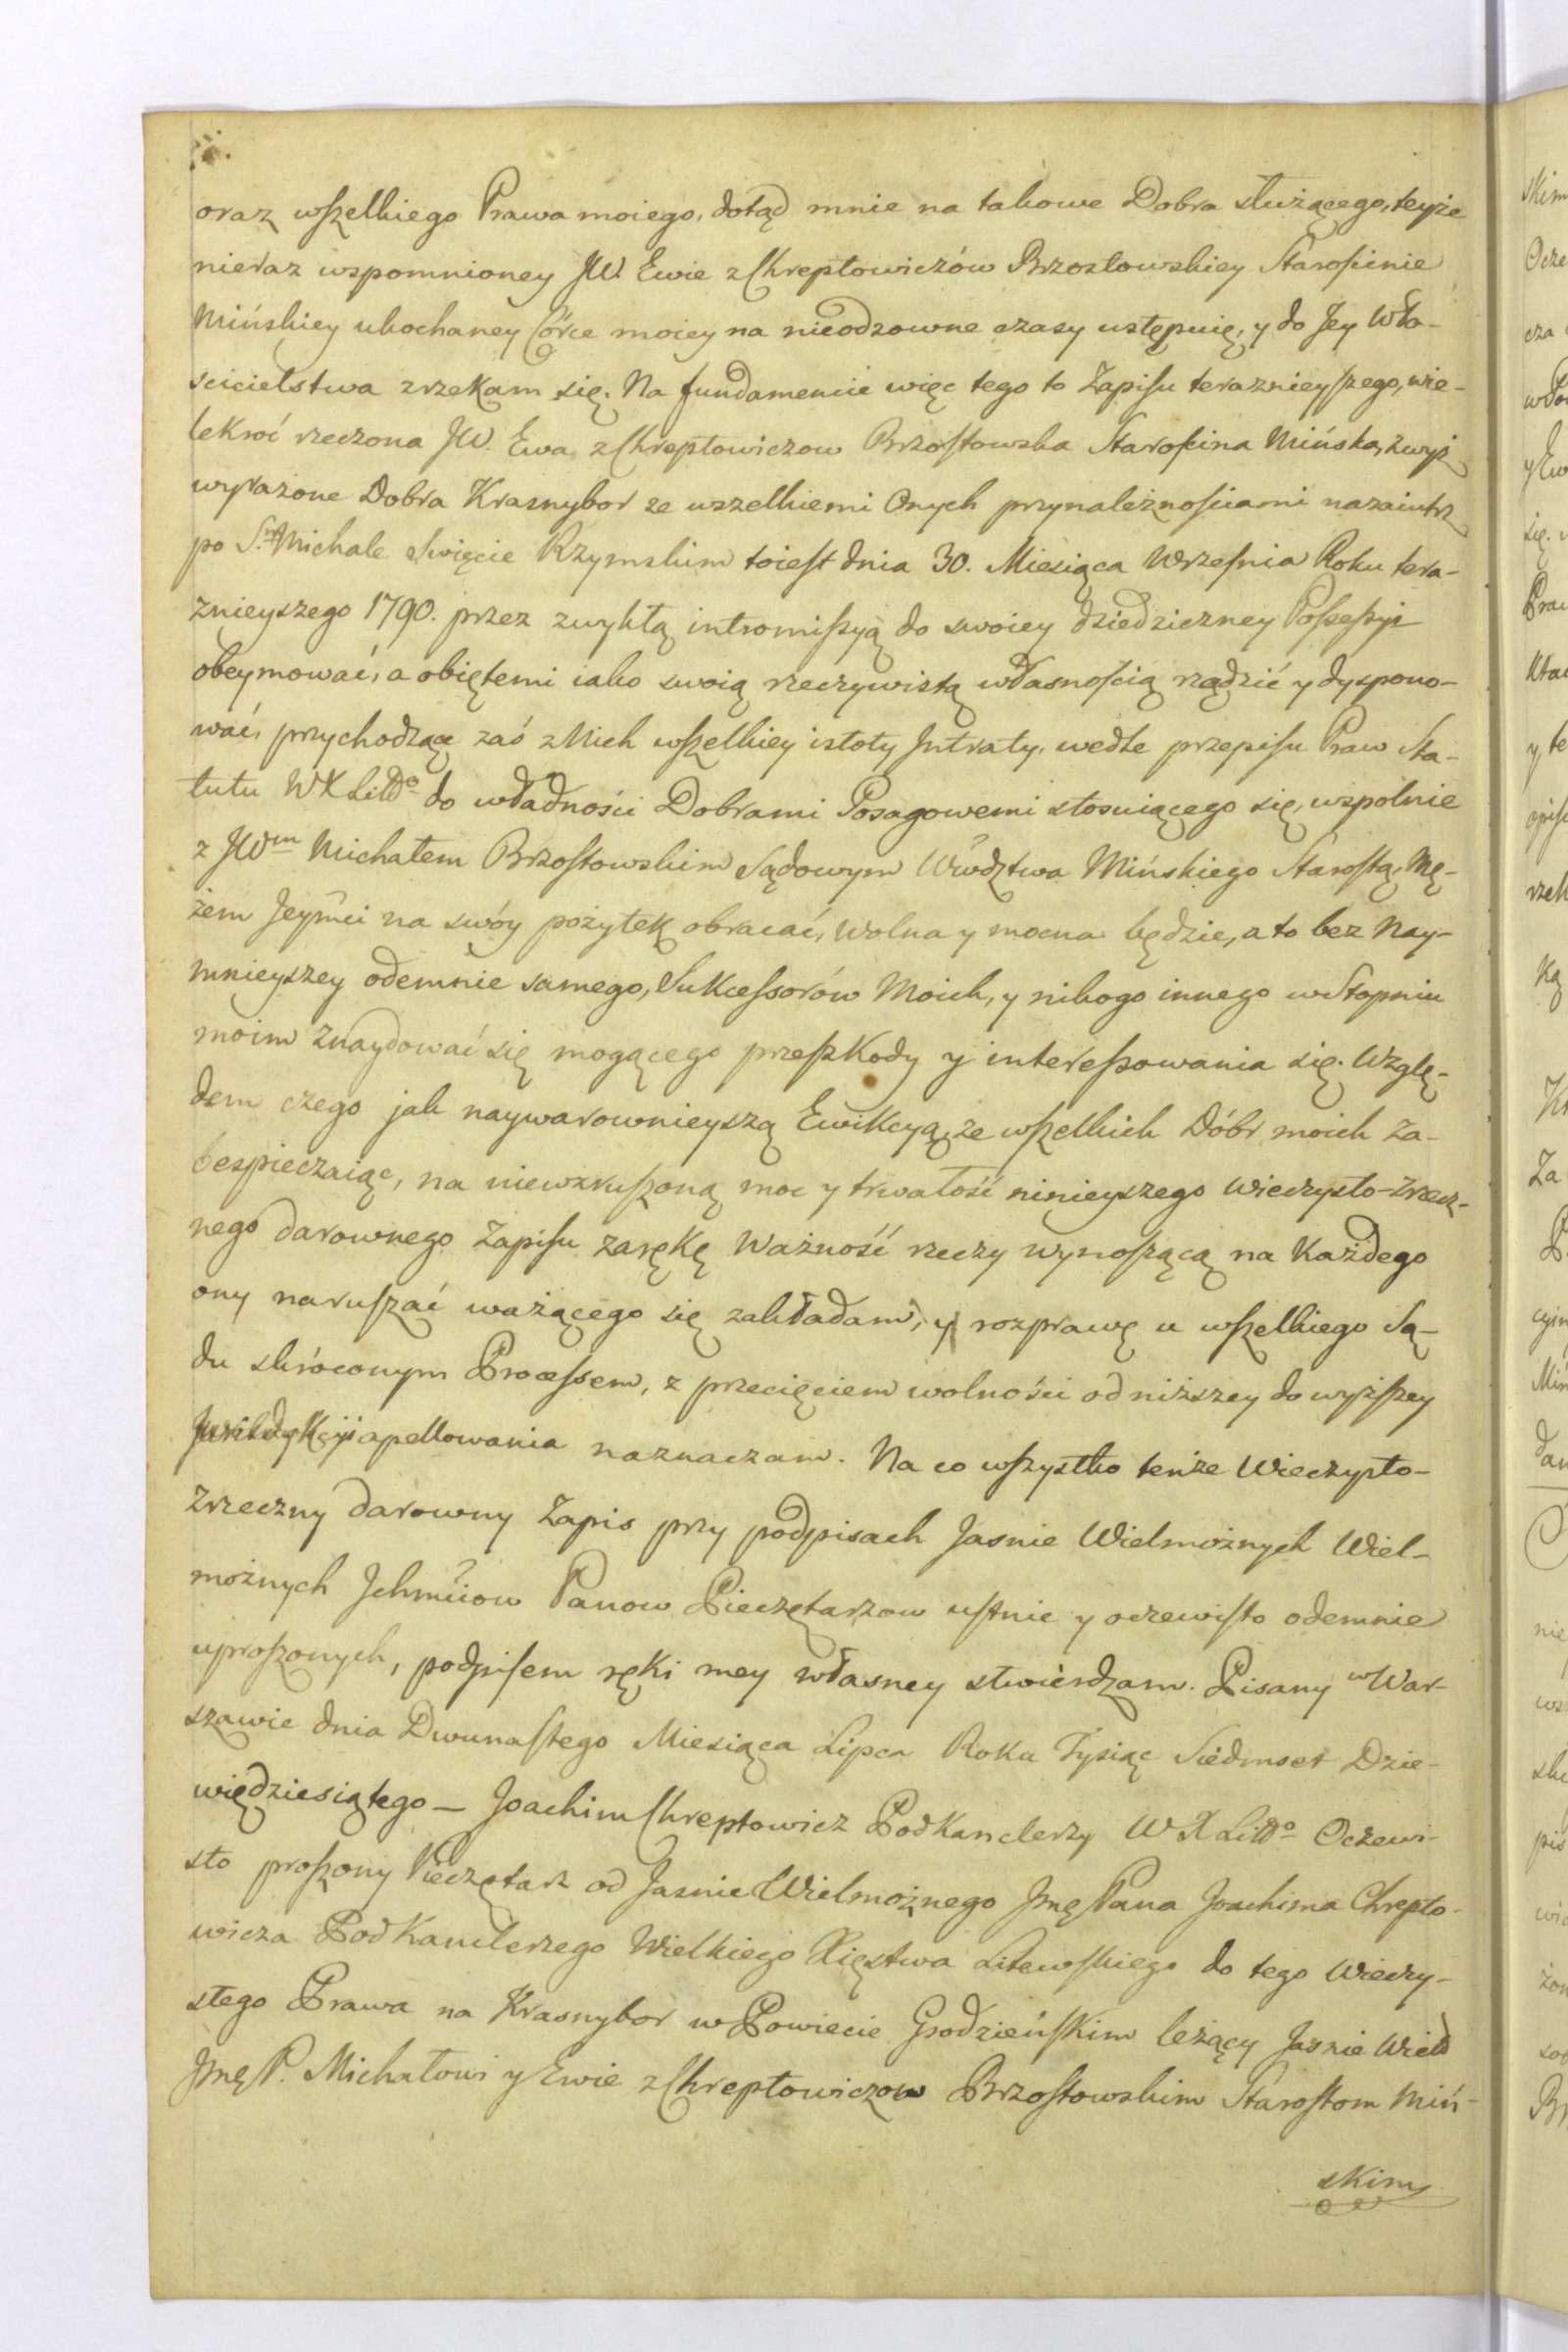 oraz wszelkiego Prawa moiego, dotąd mnie na takowe Dobra służącego, teyże
nieraz wspomnioney JW. Ewie z Chreptowiczów Brzostowskiey Starościnie
Mińskiey ukochaney Córce moiey na nieodzowne czasy ustępuię, y do Jey Wła-
scicielstwa zrzekam się. Na fundamencie więc tego to Zapisu teraznieyszego, wie-
lekroć rzeczona JW. Ewa z Chreptowiczow Brzostowska Starościna Mińska, zwyż
wyrażone Dobra Krasnybor ze wszelkiemi Onych przynależnościami nazaiutrz
po S.m Michale Swięcie Rzymskim toiest dnia 30. Miesiąca Września Roku tera-
znieyszego 1790. przez zwykłą intromissyą do swoiey dziedziczney Possessyi
obeymować, a obiętemi iako swoią rzeczywistą własnością rządzić y dyspono-
wać, przychodzące zaś z Nich wszelkiey istoty Jntraty, wedle przepisu Praw Sta-
tutu WX Littō do władności Dobrami Posagowemi stosuiącego się, wspolnie
z JWm Michałem Brzostowskim Sądowym Wwdztwa Mińskiego Starostą, Mę-
żem Jeymći na swóy pożytek obracać, wolna y mocna będzie, a to bez Nay-
mnieyszey odemnie samego, Sukcessorów Moich, y nikogo innego w Stopniu
moim znaydować się mogącego przeszkody y interessowania się. Wzglę-
dem czego jak naywarownieyszą Ewikcyą ze wszelkich Dóbr moich za-
bespieczaiąc, na niewzruszoną moc y trwałość ninieyszego wieczysto-Zrzecz-
nego darownego Zapisu zarękę Ważność rzeczy wynoszącą na każdego
ony naruszać ważącego się zakładam, y rozprawę u wszelkiego Są-
du skróconym Processem, z przecięciem wolności od niższey do wyższey
Jurisdykcyi apellowania naznaczam. Na co wszystko tenże Wieczysto-
Zrzeczny darowny Zapis przy podpisach Jasnie Wielmożnych Wiel-
możnych Jchmćiow Panow Pieczętarzow ustnie y oczewisto odemnie
uproszonych, podpisem ręki mey własney stwierdzam. Pisany w War-
szawie dnia Dwunastego Miesiąca Lipca Roku Tysiąc Siedmset Dzie-
więdziesiątego — Joachim Chreptowicz Podkanclerzy WX Littō Oczewi-
sto proszony Pieczętarz od Jasnie Wielmożnego Jmę Pana Joachima Chrepto-
wicza Podkanclerzego Wielkiego Xięstwa Litewskiego do tego Wieczy-
stego Prawa na Krasnybor w Powiecie Grodzieńskim leżący Jasnie Wield
Jmę P. Michałowi y Ewie z Chreptowiczow Brzostowskim Starostom Miń-
skim